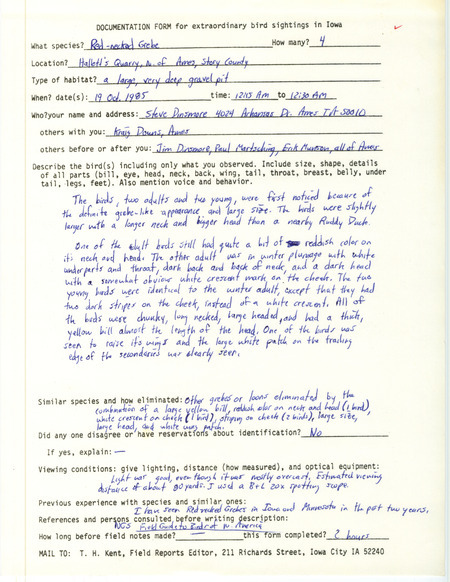 DOCUMENTATION FORM for extraordinary bird sightings in Iowa
What species? Red-necked Grebe How many? 4
Location? Hallett's Quarry, N. of Ames, Story County
Type of habitat? a large, very deep gravel pit
When? date(s): 19 Oct. 1985 time: 12:15 AM to 12:30 AM
Who?your name and address: Steve Dinsmore 4024 Arkansas Dr. Ames IA 50010
others with you: Kraig Downs, Ames
others before or after you: Jim Dinsmore, Paul Martsching, Erik Munson, all of Ames
Describe the bird(s) including only what you observed. Include size, shape, details
of all parts (bill, eye, head, neck, back, wing, tail, throat, breast, belly, under
tail, legs, feet). Also mention voice and behavior.
The birds, two adults and two young, were first noticed because of
the definite grebe-like appearance and large size. The birds were slightly
larger with a longer neck and bigger head than a nearby Ruddy Duck.
One of the adult birds still had quite a bit of reddish color on
it's neck and head. The other adult was in winter plumage with white
underparts and throat, dark back and back of neck, and a dark head
with a somewhat obvious white crescent mark on the cheek. The two
young birds were identical to the winter adult, except that they had
two dark stripes on the cheek, instead of a white crescent. All of
the birds were chunky, long necked, large headed, and had a thick,
yellow bill almost the length of the head. One of the birds was
seen to raise its wings and the large white patch on the trailing
edge of the secondaries was clearly seen.
Similar species and how eliminated: Other grebes or loons eliminated by the
combination of a large yellow bill, reddish color on neck and head (1 bird),
white crescent on cheek (1 bird), striping on cheek (2 birds), large size,
large head, and white wing patch.
Did any one disagree or have reservations about identification? No
If yes, explain: —
Viewing conditions: give lighting, distance (how measured), and optical equipment:
Light was good, even though it was mostly overcast. Estimated viewing
distance of about 80 yards. I used a B+L 20x spotting scope.
Previous experience with species and similar ones:
I have seen Red-necked Grebes in Iowa and Minnesota in the past two years.
References and persons consulted before writing description:
NGS Field Guide to Birds of N. America
How long before field notes made? this form completed? 2 hours
MAIL TO: T. H. Kent, Field Reports Editor, 211 Richards Street, Iowa City IA 52240